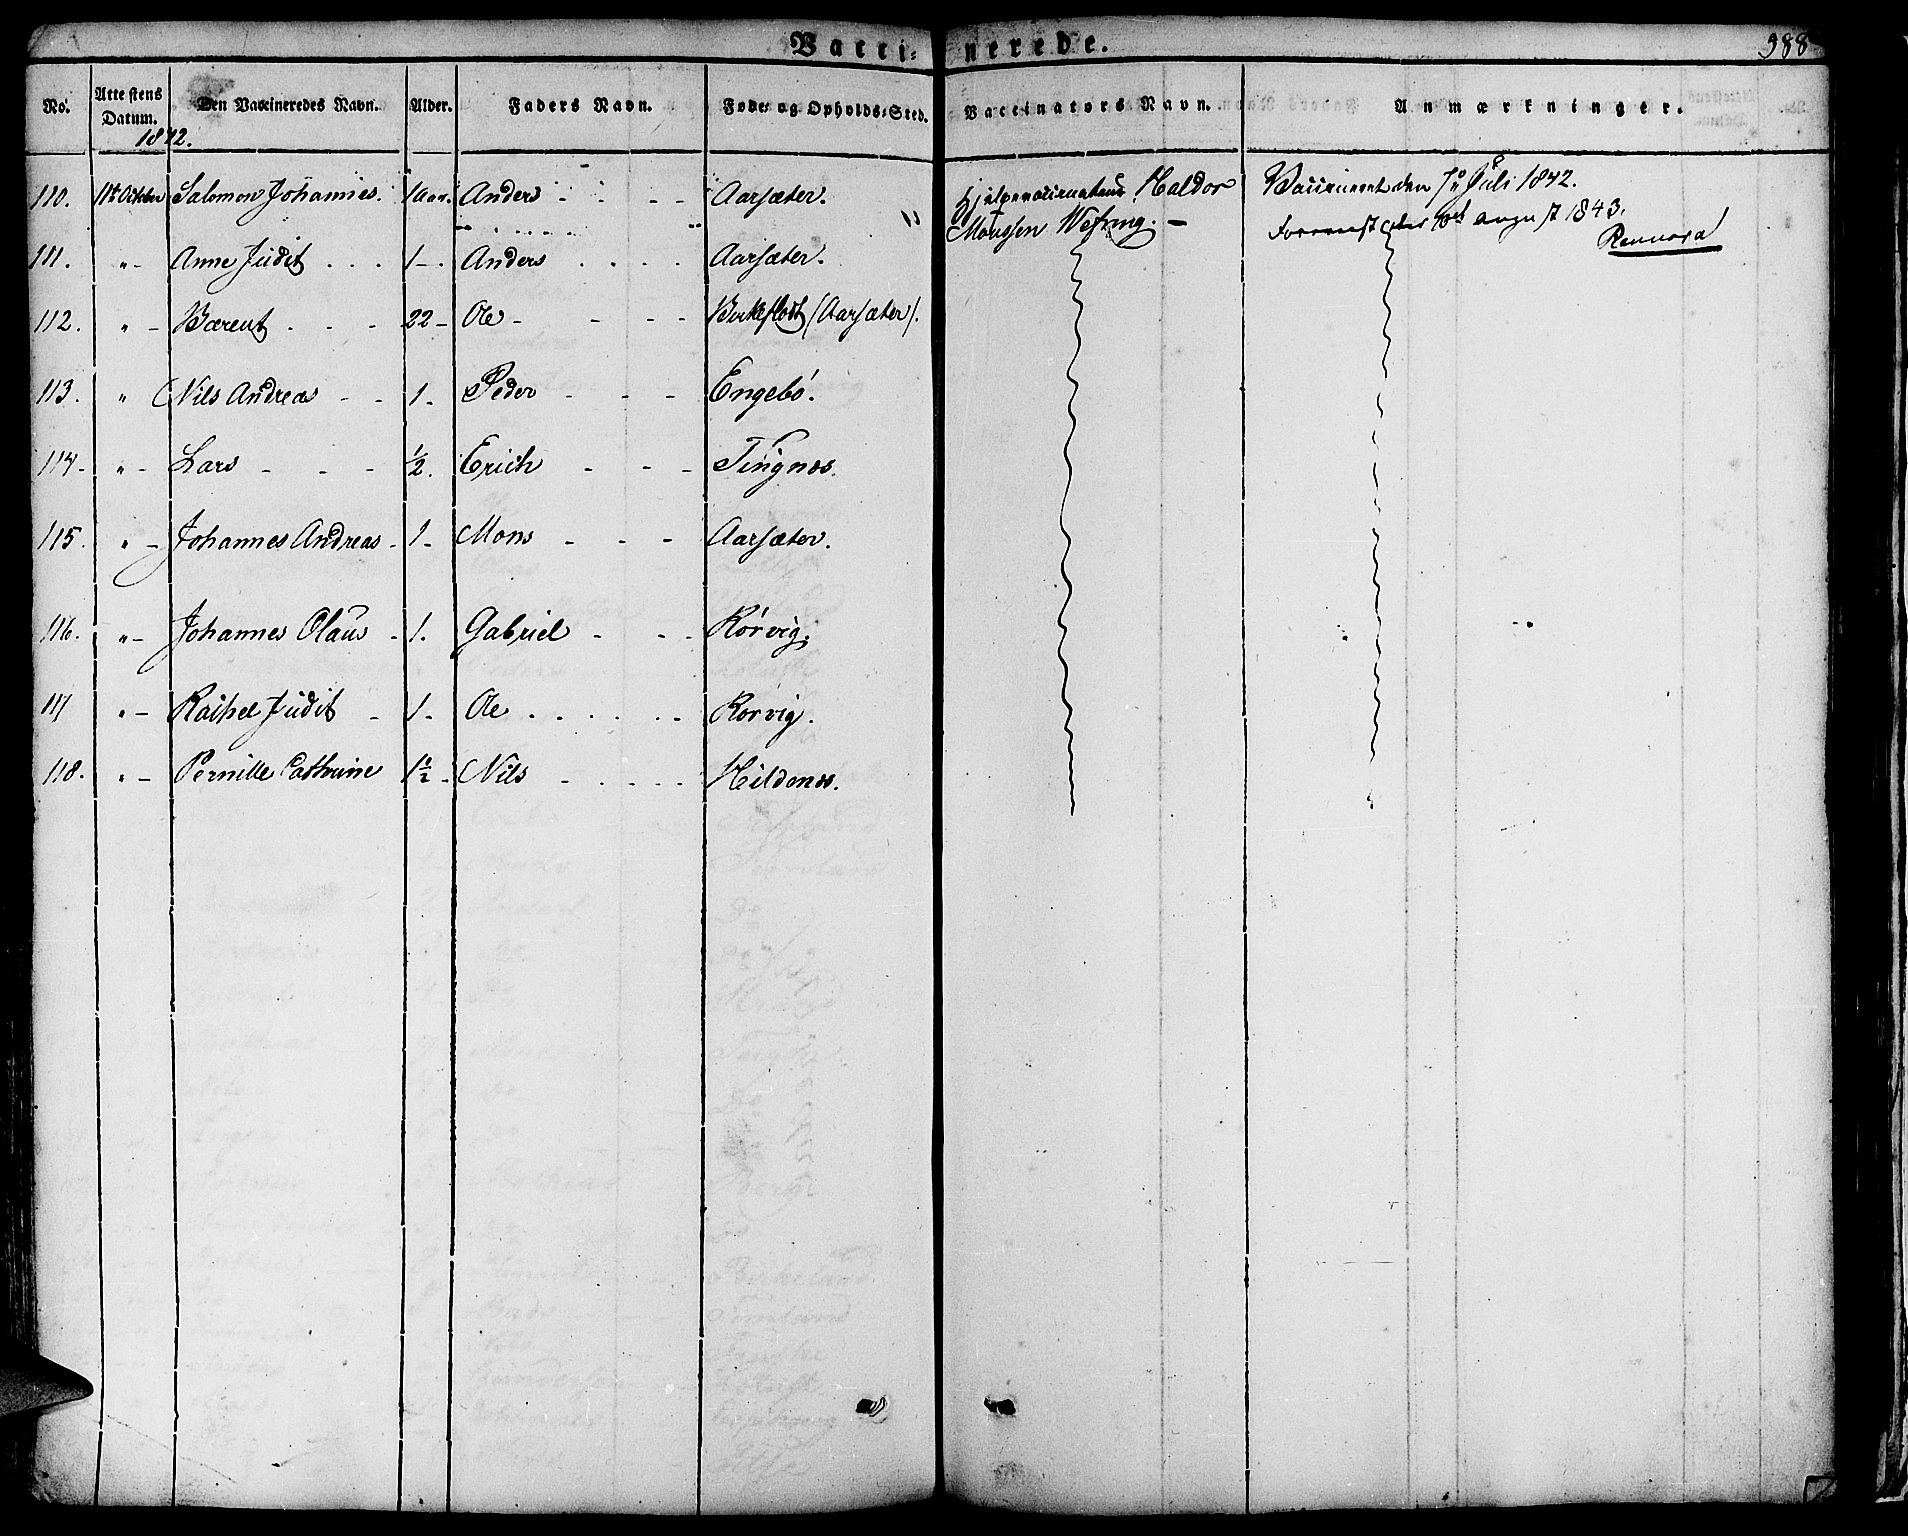 Vacci-nerede. 388
No. Attestens Datum. Den Vaccineredes Navn. Alder. Faders Navn. Føde- og Opholds-Sted. Vaccinators Navn. Anmærkninger.
1842.
110. 11te Octbr Salomon Johannes. 1 Aar. Anders - - - - Aarsæter. Hjelpevaccinateur Haldor Vaccineret den 7de Juli 1842.
Monssen Wefring. - august 1843.
111. "- Anne Judit . . . 1 -. Anders . . . . Aarsæter.
112. " - Bærent . - - 22 - Ole - - - - (Aarsæter).
113. " Nils Andreas - - 1. - Peder - - - Engebö.
114 - " - Lars - - - 1/2. Erich - - - Tingnæs.
115. " - Johannes Andreas - 1 - Mons - - - Aarsæter.
116. " - Johannes Olaus - 1. Gabriel - - - Rörvig.
117 " - Rachel Judit - 1. - Ole . . . . . . Rörvig.
118. " - Pernille Cathrine 1 1/2 - Nils . . . . . Hildenæs.